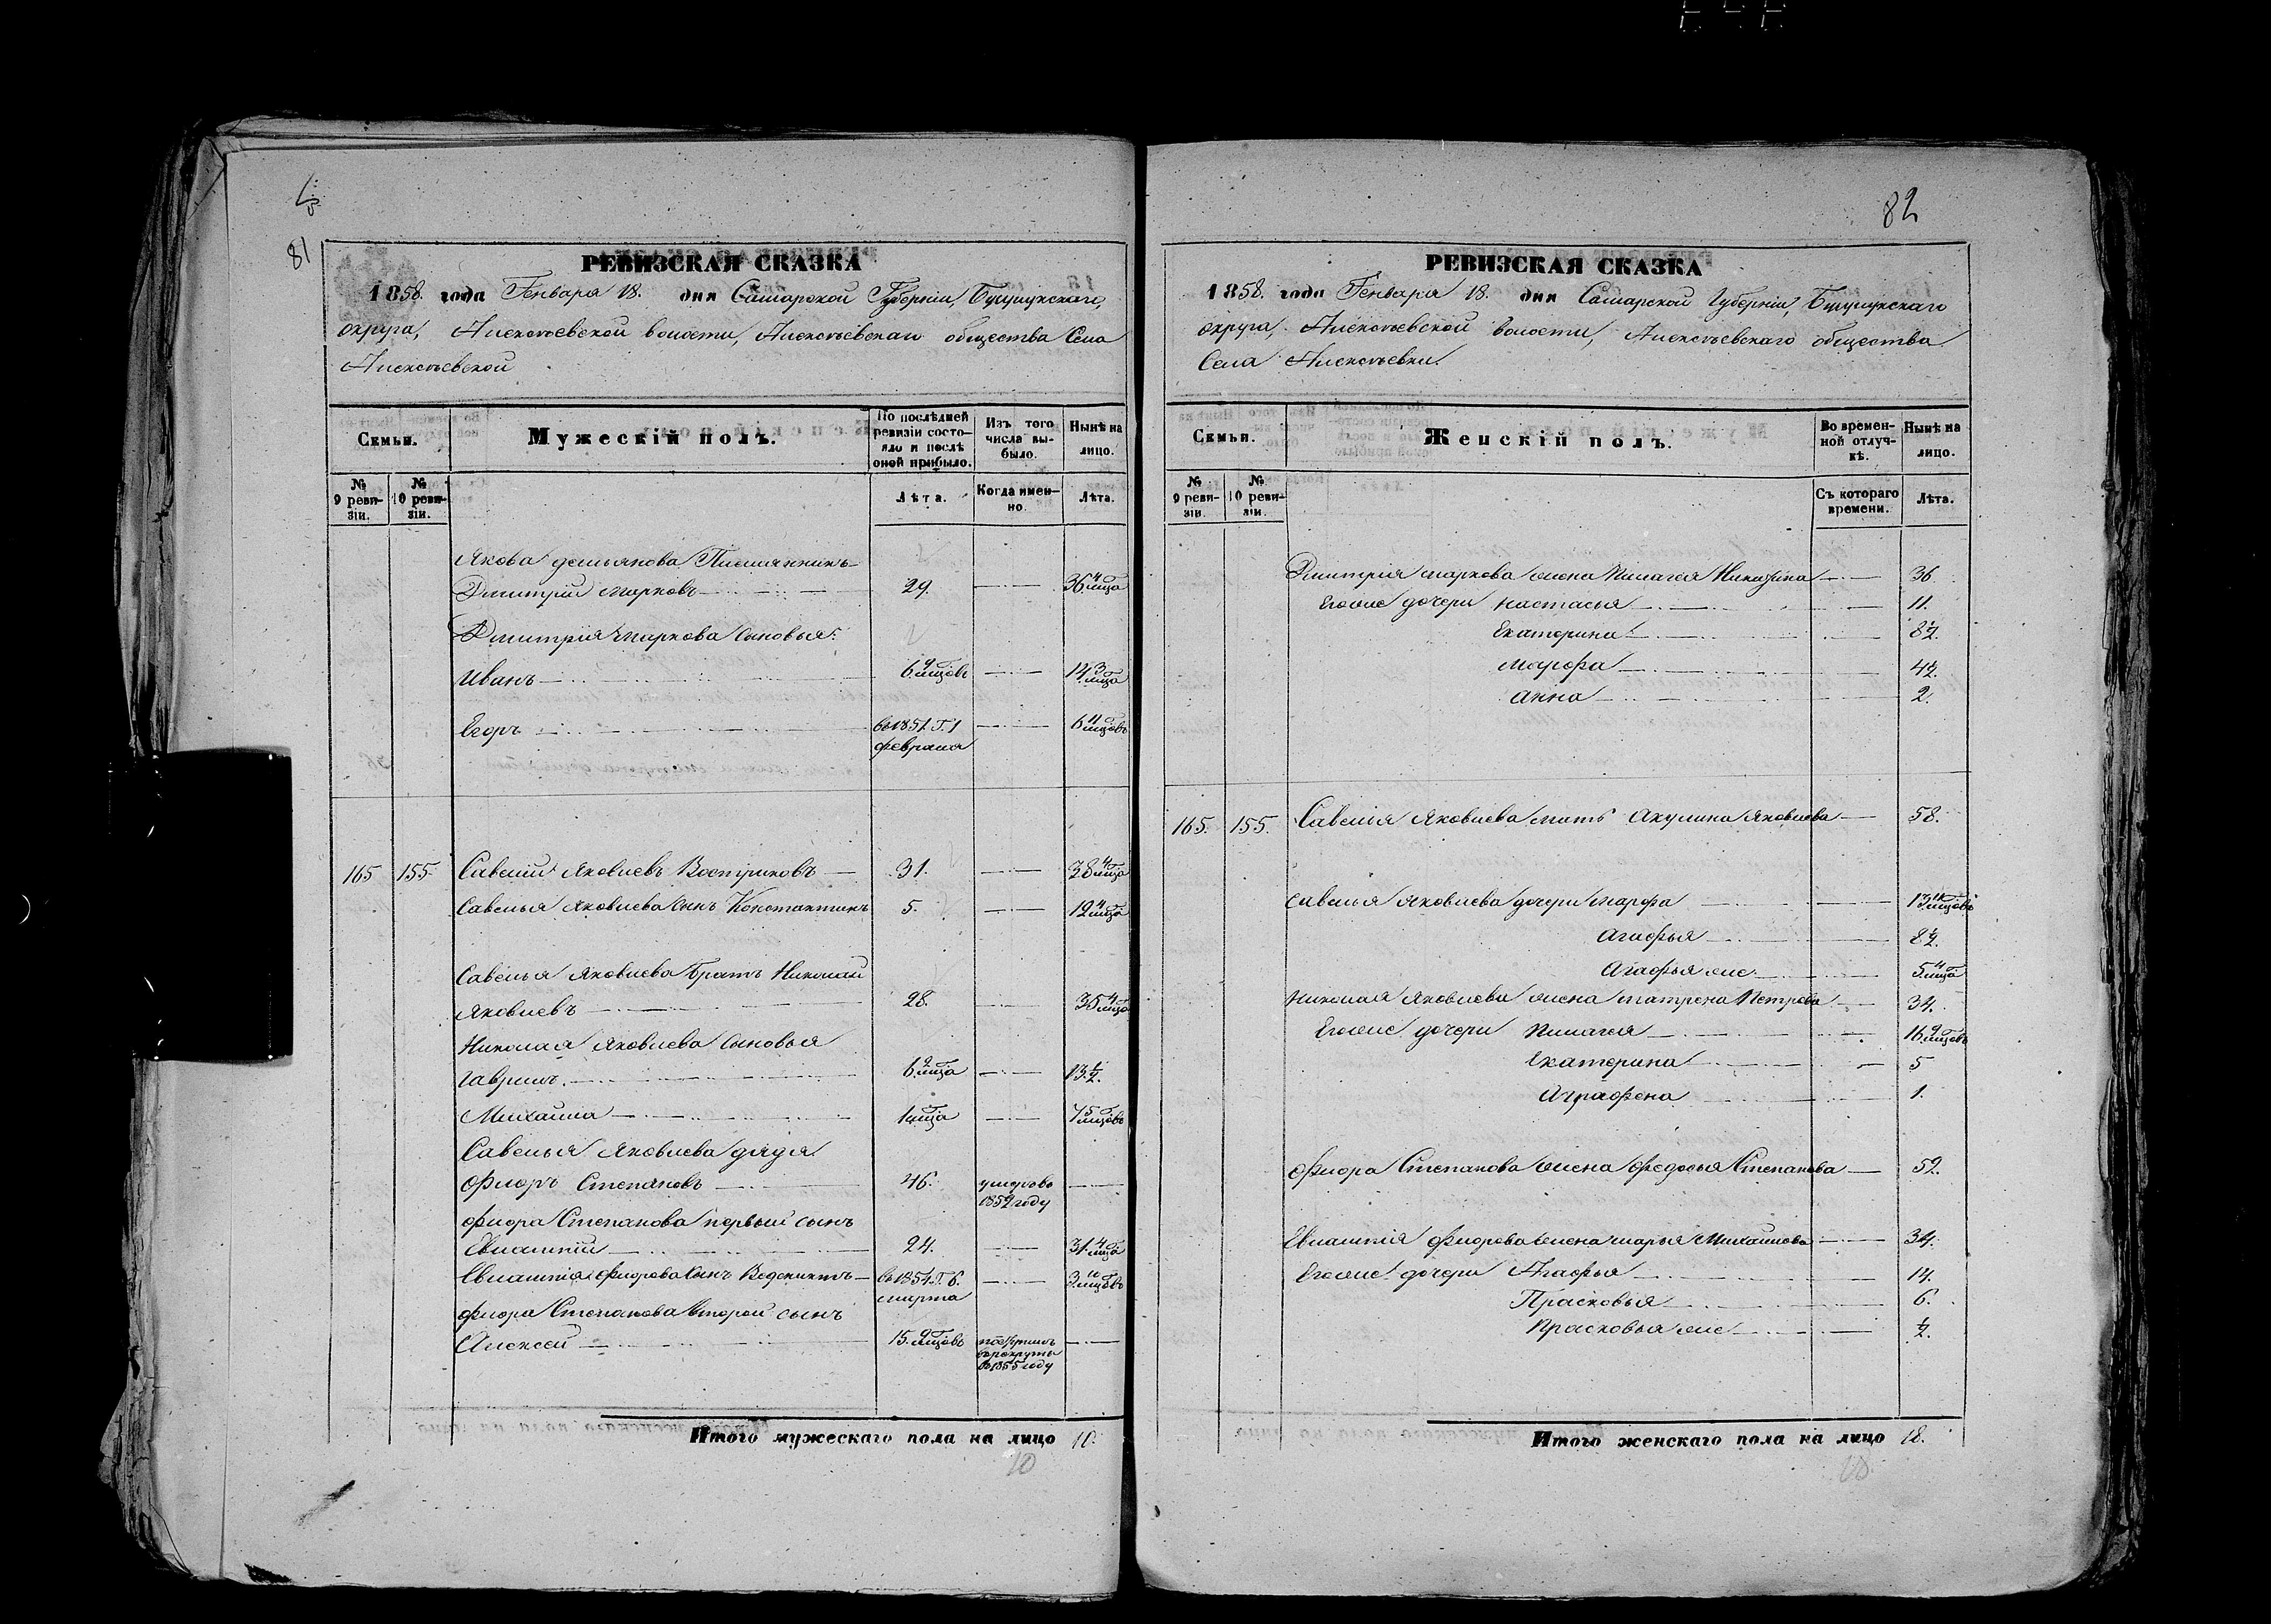 81
РЕВИЗСКАЯ СКАЗКА
1858. года Генваря 18. дня Самарской Губерніи, Бузулукскаго,
округа, Алексѣевской волости, Алексѣевскаго общества Села
Алексѣевской
Семьи.
Мужескій полъ.
По послѣдней ревизіи состояло и послѣ оной прибыло.
Изъ того числа выбыло.
Нынѣ на лицо.
№ 9 ревизіи.
№ 10 ревизіи.
Лѣта.
Когда именно.
Лѣта.
Якова демьянова Племянникъ
Дмитрій марковъ 29. 36. 4 мѣца
Дмитрія маркова сыновья:
Иванъ 6. 9 мѣцовъ 14. 3 мѣца
Егоръ въ 1851. Г. 1 февраля 6. 11 мѣцовъ
165 155. Савелій Яковлевъ Востриковъ 31. 38. 4 мѣца
Савелья Яковлева сынъ Константинъ 5. 12. 4 мѣца
Савелья Яковлева братъ Николай
Яковлевъ 28. 35. 4 мѣца
Николая Яковлева сыновья
Гаврилъ. 6. 2 мѣца 13. ½.
Михаила 1 мѣца 7. 5 мѣцовъ
Савелья Яковлева дядя
Флоръ Степановъ 46. умеръ въ 1852 году
Флора Степанова первый сынъ
Евлампій 24. 31. 4 мѣца
Евлампія Флорова сынъ Веденихтъ въ 1854. Г. 6. марта 3. мѣцовъ
Флора Степанова второй сынъ
Алексей 15. 9 мѣцовъ въ рекруты въ 1855 году
Итого мужескаго пола на лицо 10.
10
82
РЕВИЗСКАЯ СКАЗКА
1858. года Генваря 18. дня Самарской Губерніи, Бузулукскаго
округа, Алексѣевской волости, Алексѣевскаго общества
Села Алексѣевки.
Семьи.
Женскій полъ.
Во временной отлучкѣ.
Нынѣ на лицо.
№ 9 ревизіи.
№ 10 ревизіи.
Съ котораго времени.
Лѣта.
Дмитрія маркова жена Пилагея Никозина 36.
Егоже дочери Настасья 11.
Екатерина 8½.
Марфа 4½.
Анна 2.
165. 155. Савелія Яковлева мать Акулина Яковлева 58.
Савелья Яковлева дочери Марфа 13. 11 мѣцовъ
Агафья 8½.
Агафья же 5. 4 мѣца
Николая Яковлева жена матрена Петрова 34.
Егоже дочери Пилагея 16. 9 мѣцовъ
Екатерина 5
Аграфена 1.
Флора Степанова жена Федосья Степанова 52.
Евлампія Флорова жена марья Михайлова 34.
Егоже дочери Агафья 14.
Прасковья 6.
Прасковья же ½.
Итого женскаго пола на лицо 18.
18